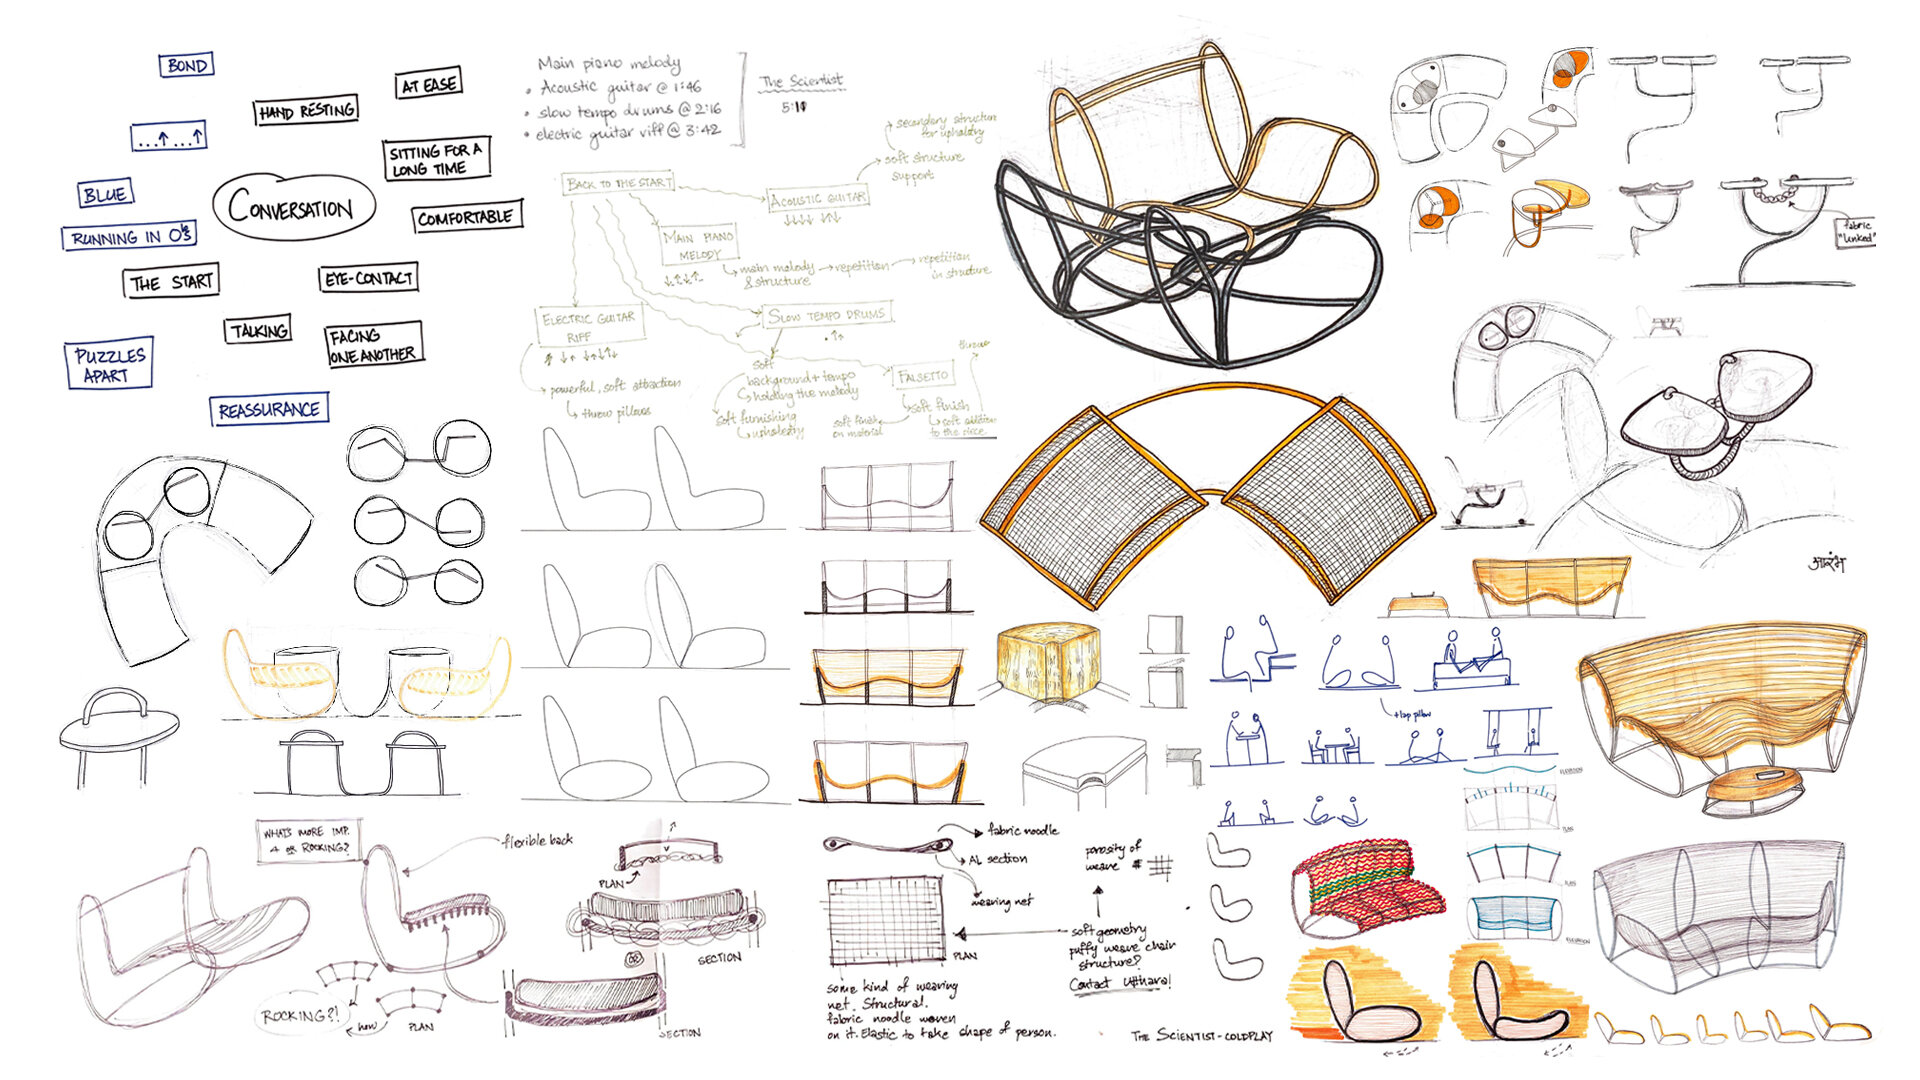 BOND
HAND RESTING
AT EASE
...↑...↑
SITTING FOR A
LONG TIME
BLUE
CONVERSATION
COMFORTABLE
RUNNING IN O's
THE START
EYE-CONTACT
TALKING
FACING
ONE ANOTHER
PUZZLES
APART
REASSURANCE
Main piano melody
• Acoustic guitar @ 1:46
• slow tempo drums @ 2:16
• electric guitar riff @ 3:42
The Scientist
5:11
BACK TO THE START
ACOUSTIC GUITAR
↓↓↓↓ ↑↓↓
secondary structure
for upholstry
soft structure
support
MAIN PIANO
MELODY
main melody
& structure
repetition
repetition
in structure
ELECTRIC GUITAR
RIFF
powerful, soft attraction
throw pillows
SLOW TEMPO DRUMS
soft
background + tempo
holding the melody
soft furnishing
upholstry
FALSETTO
throw
soft finish
soft finish
on material
soft addition
to the piece.
fabric
"linked"
आरंभ
+ lap pillow
ELEVATION
PLAN
PLAN
ELEVATION
WHATS MORE IMP.
4 or ROCKING?
flexible back
ROCKING?!
how
PLAN
PLAN
SECTION
02
SECTION
fabric noodle
AL section
weaving net
PLAN
porosity of
weave #
soft geometry
puffy weave chair
structure?
Contact Uthara!
some kind of weaving
net. Structural.
fabric noodle woven
on it. Elastic to take shape of person.
THE SCIENTIST - COLDPLAY